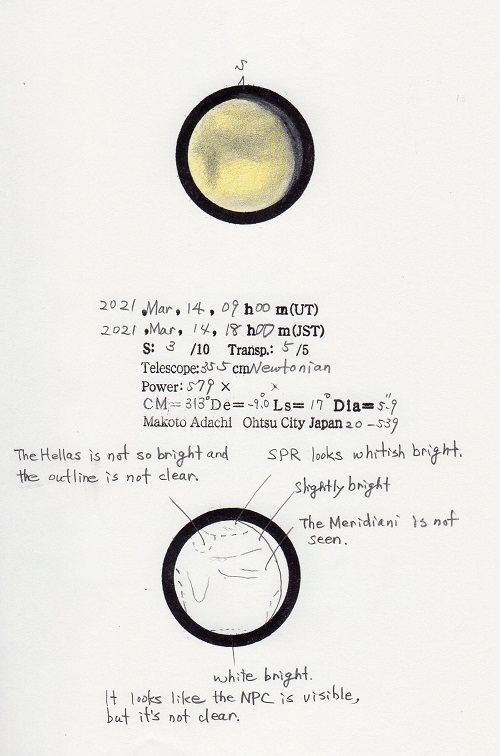 S
2021, Mar, 14, 09 h00 m(UT)
2021, Mar, 14, 18 h00 m(JST)
S: 3 /10 Transp.: 5 /5
Telescope: 35.5 cm Newtonian
Power: 579 × ×
CM= 313° De= -9.0 Ls= 17° Dia= 5".9
Makoto Adachi Ohtsu City Japan 20-539
The Hellas is not so bright and
the outline is not clear.
SPR looks whitish bright.
slightly bright
The Meridiani is not
seen.
white bright.
It looks like the NPC is visible,
but it's not clear.